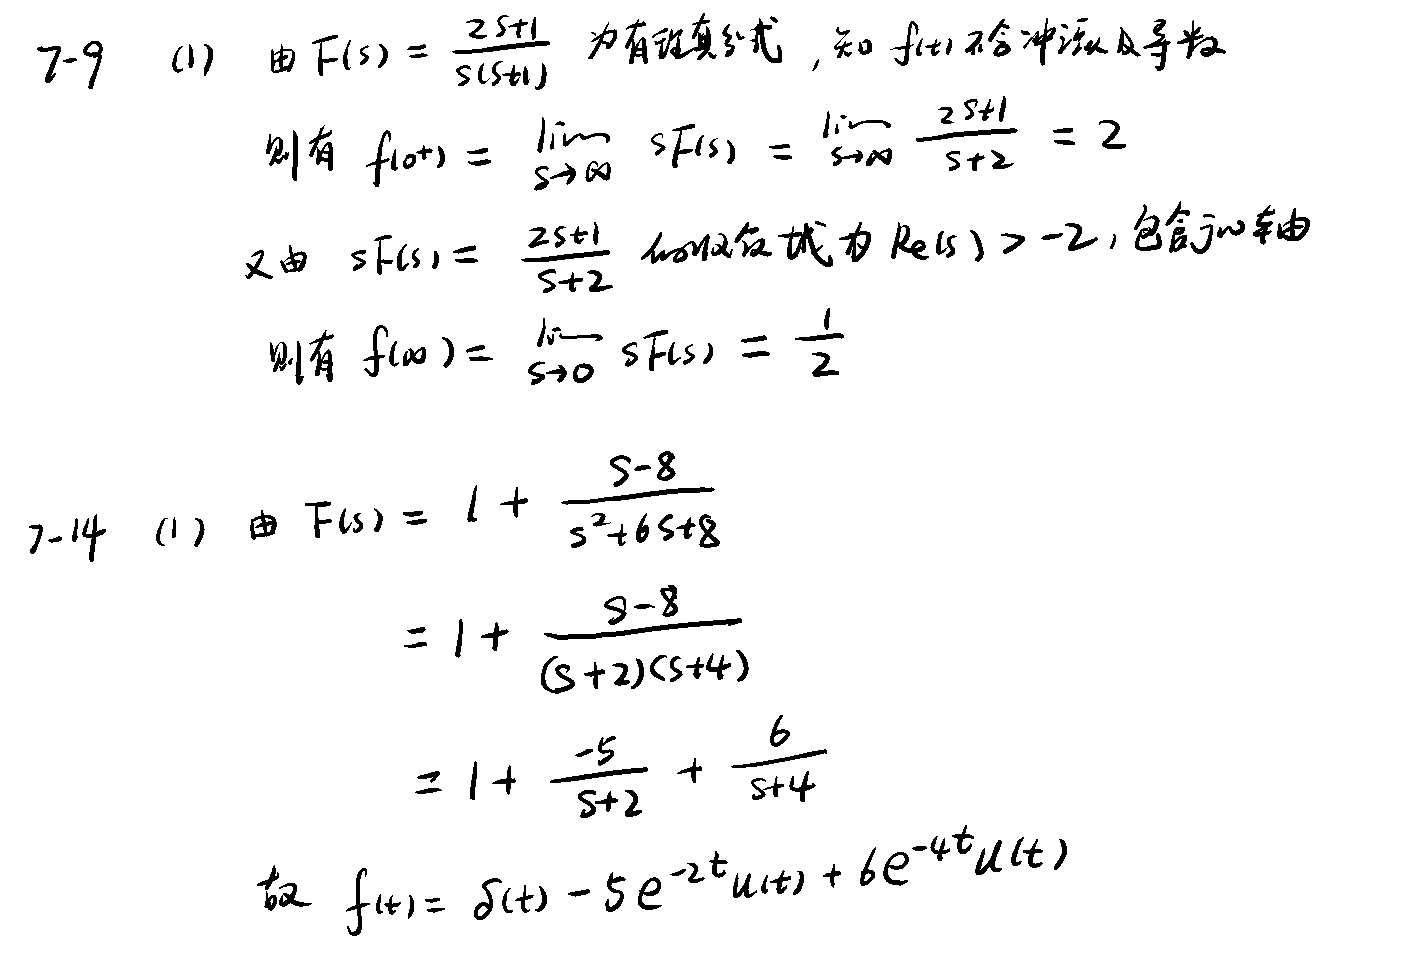 7-9 (1) 由 F(s) = \frac{2s+1}{s(s+1)} 为有理真分式, 知 f(t) 不含冲激及导数
则有 f(0^+) = \lim_{s→∞} sF(s) = \lim_{s→∞} \frac{2s+1}{s+2} = 2
又由 sF(s) = \frac{2s+1}{s+2} 的收敛域为 Re(s) > -2, 包含jω轴
则有 f(∞) = \lim_{s→0} sF(s) = \frac{1}{2}
7-14 (1) 由 F(s) = 1 + \frac{s-8}{s^2+6s+8}
= 1 + \frac{s-8}{(s+2)(s+4)}
= 1 + \frac{-5}{s+2} + \frac{6}{s+4}
故 f(t) = δ(t) - 5e^{-2t}u(t) + 6e^{-4t}u(t)